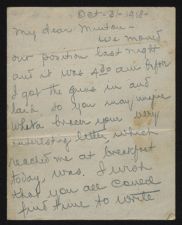 Oct-31-1918-
My dear Minton -
we moved
our position last night
and it was 430 am before
I got the guns in and
laid so you may imagine
what a bracer your very
interesting letter, which
reached me at breakfast
today, was. I wish
that you all could
find time to write